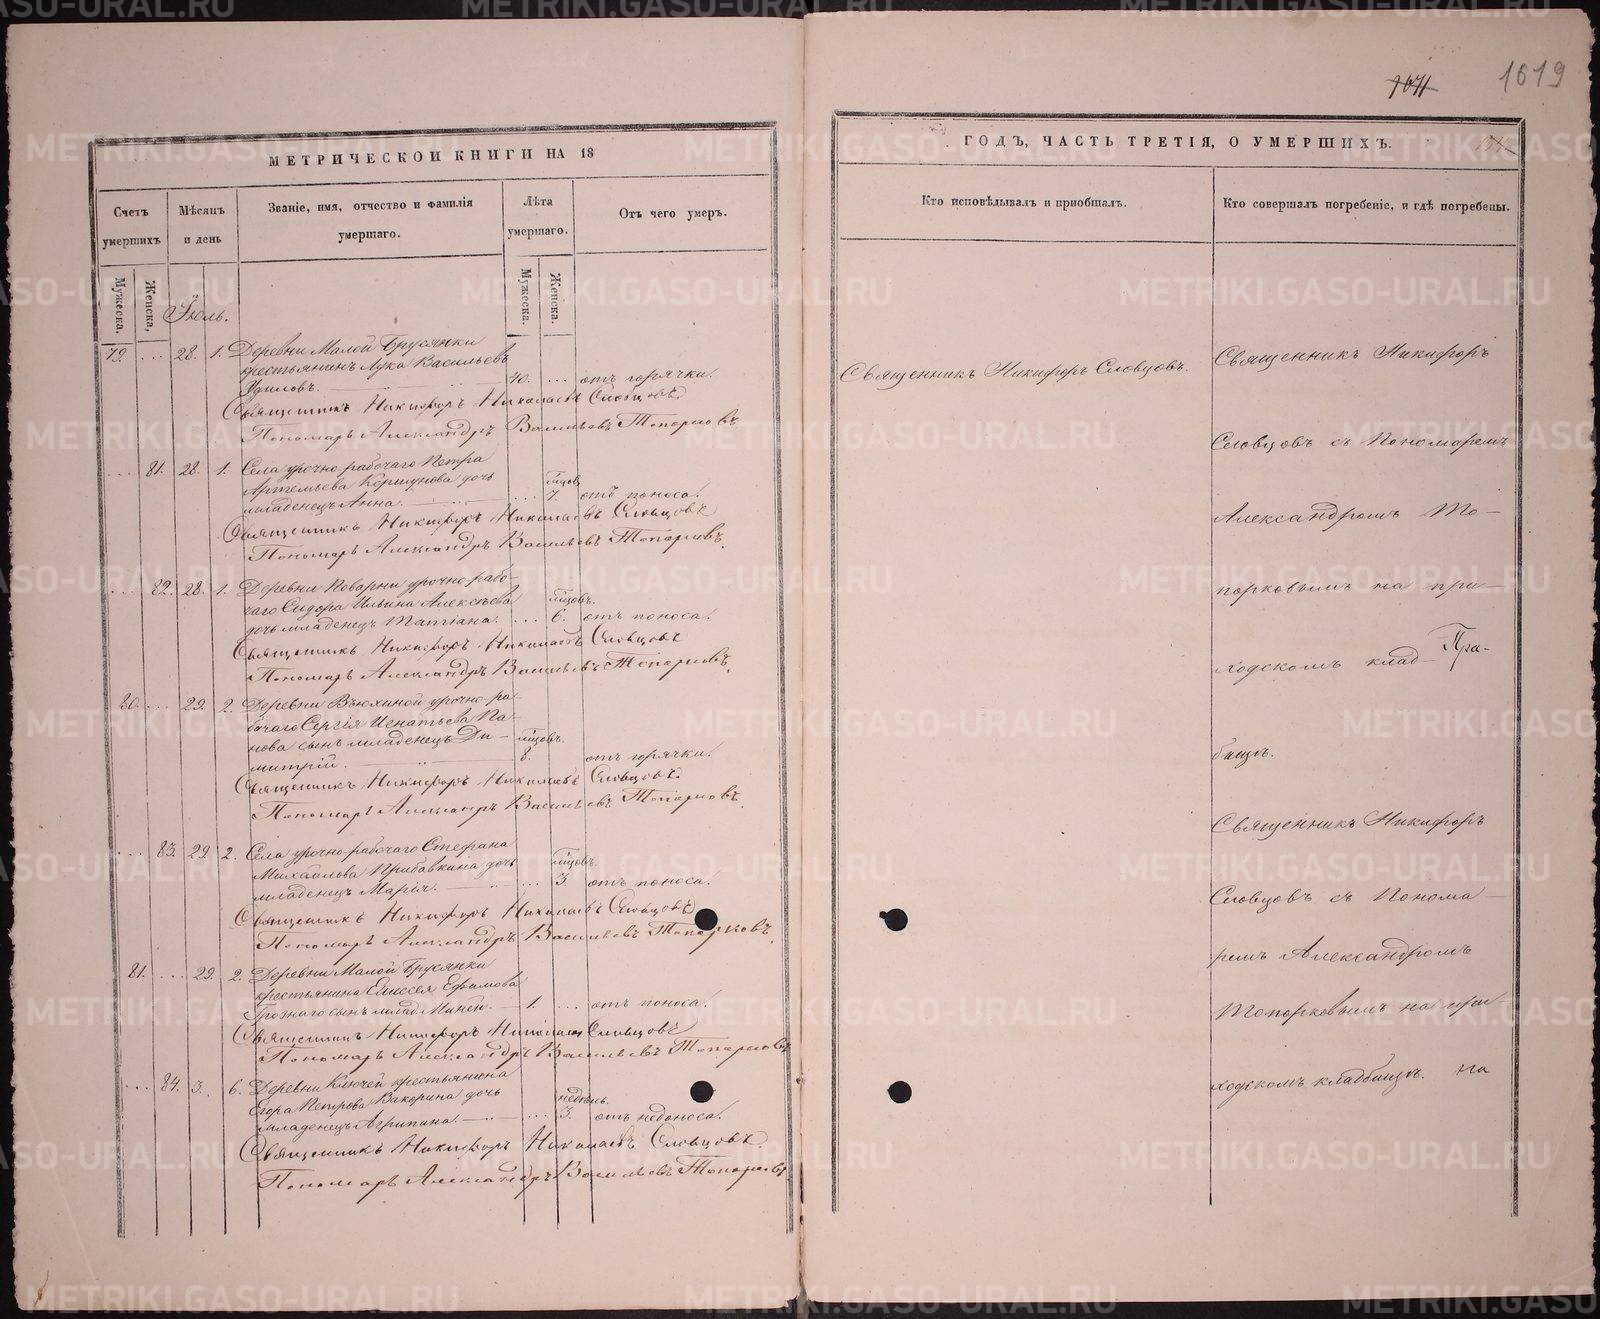 МЕТРИЧЕСКОЙ КНИГИ НА 18
Счетъ умершихъ
Мѣсяцъ и день
Званіе, имя, отчество и фамилія умершаго.
Лѣта умершаго.
Отъ чего умеръ.
Мужеска.
Женска.
Мужеска.
Женска.
Іюль.
79. ... 28. 1. Деревни Малой Брусянки
крестьянинъ Лука Васильевъ
40. ... отъ горячки.
Священникъ Никифоръ Николаевъ Словцовъ
Пономарь Александръ Васильевъ Топорковъ.
... 81. 28. 1. Села урочно-рабочаго Петра
Артемьева Коршунова дочь
младенецъ Анна. ... 7. отъ поноса.
Священникъ Никифоръ Николаевъ Словцовъ
Пономарь Александръ Васильевъ Топорковъ.
... 82. 28. 1. Деревни Поварни урочно-рабо-
чаго Сидора Ильина Алексѣева
дочь младенецъ Татіана. ... 6. отъ поноса.
Священникъ Никифоръ Николаевъ Словцовъ
Пономарь Александръ Васильевъ Топорковъ.
80. ... 29. 2. Деревни Вьюхиной урочно-ра-
бочаго Сергія Игнатьева Па-
нова сынъ младенецъ Ди-
митрій. 8. отъ горячки.
Священникъ Никифоръ Николаевъ Словцовъ
Пономарь Александръ Васильевъ Топорковъ.
... 83. 29. 2. Села урочно-рабочаго Стефана
Михайлова Прибавкина дочь
младенецъ Марія. ... 3. отъ поноса.
Священникъ Никифоръ Николаевъ Словцовъ
Пономарь Александръ Васильевъ Топорковъ.
81. ... 29. 2. Деревни Малой Брусянки
крестьянина Елисея Ефимова
Грознаго сынъ млад. 1. ... отъ поноса.
Священникъ Никифоръ Николаевъ Словцовъ
Пономарь Александръ Васильевъ Топорковъ
... 84. 3. 6. Деревни Ключей крестьянина
Егора Петрова Вакорина дочь
младенецъ Агрипина. ... недѣль. 3. отъ недоноса.
Священникъ Никифоръ Николаевъ Словцовъ
Пономарь Александръ Васильевъ Топорковъ.
1071
1619
ГОДЪ, ЧАСТЬ ТРЕТІЯ, О УМЕРШИХЪ.
Кто исповѣдывалъ и пріобщалъ.
Кто совершалъ погребеніе, и гдѣ погребены.
Священникъ Никифоръ Словцовъ.
Священникъ Никифоръ
Словцовъ съ Пономаремъ
Александромъ То-
порковымъ на при-
ходскомъ клад- Пра-
бищѣ.
Священникъ Никифоръ
Словцовъ съ Понома-
ремъ Александромъ
Топорковымъ на при-
ходскомъ кладбищѣ. на
METRIKI.GASO-URAL.RU